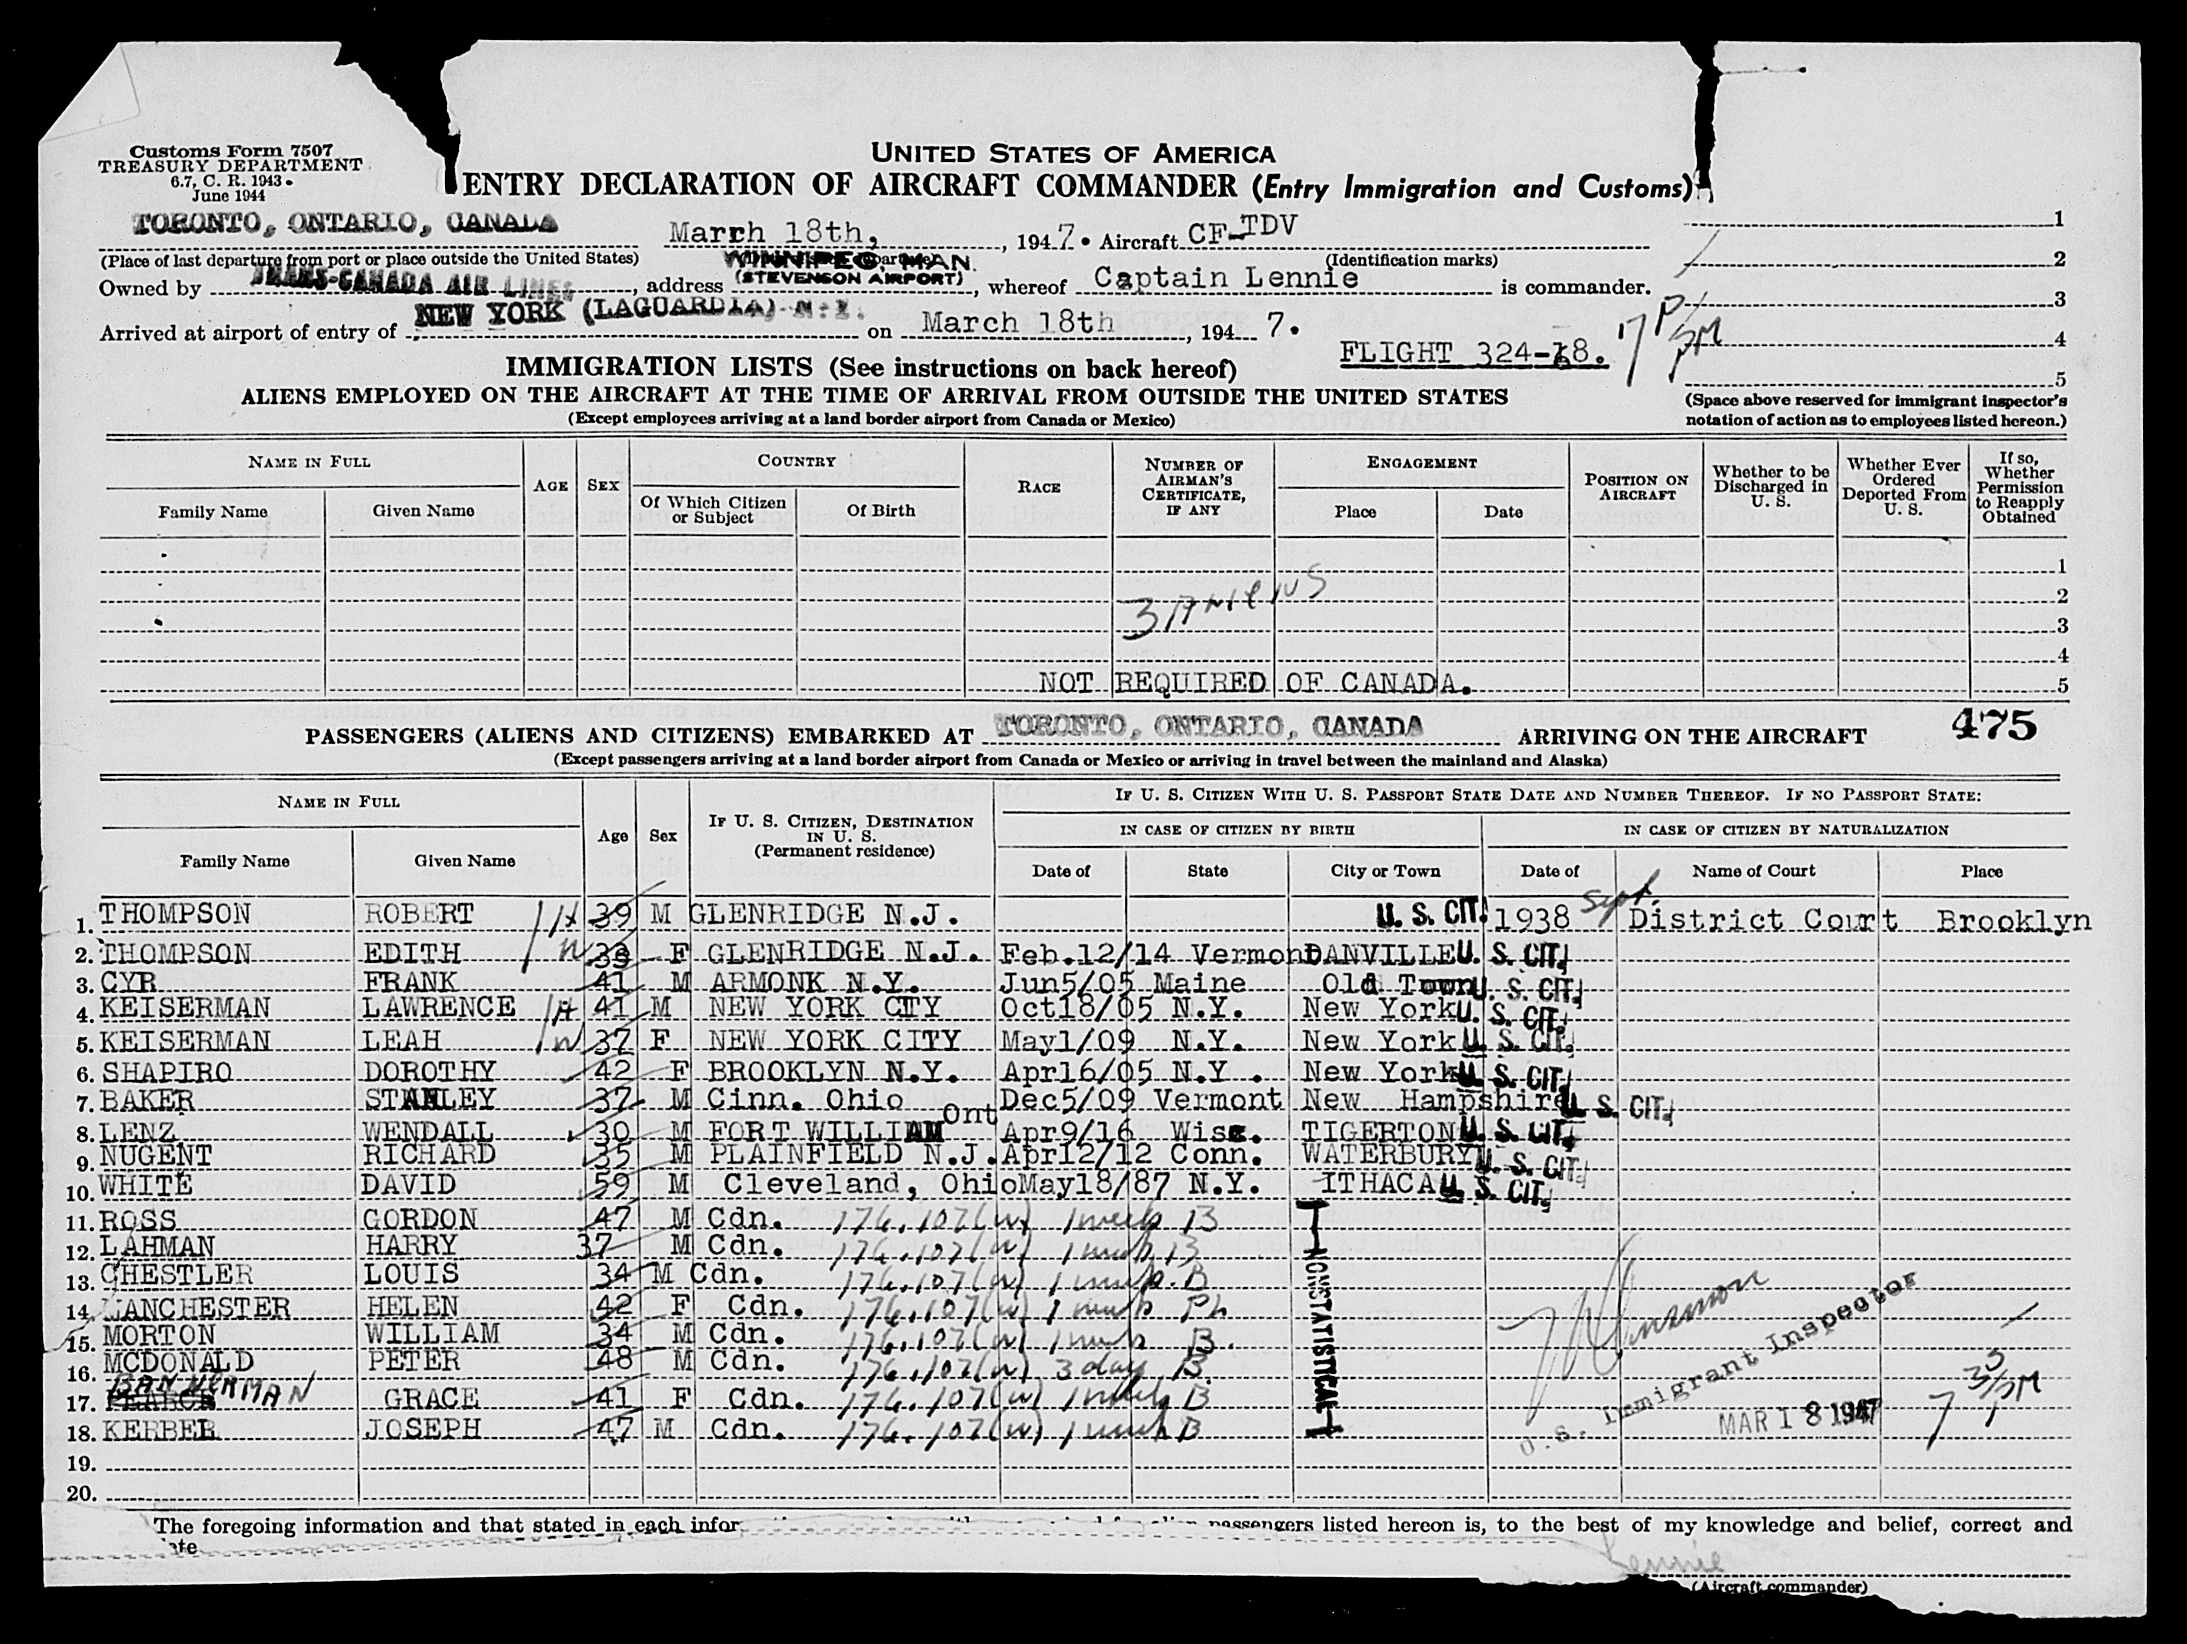 Customs Form 7507
TREASURY DEPARTMENT
6.7, C. R. 1943.
June 1944
UNITED STATES OF AMERICA
ENTRY DECLARATION OF AIRCRAFT COMMANDER (Entry Immigration and Customs)
TORONTO, ONTARIO, CANADA March 18th, , 1947. Aircraft CF-TDV
(Place of last departure from port or place outside the United States) (Identification marks)
WINNIPEG, MAN.
Owned by TRANS-CANADA AIR LINES, address (STEVENSON AIRPORT), whereof Captain Lennie is commander.
Arrived at airport of entry of NEW YORK (LAGUARDIA) N.Y. on March 18th, 194 7.
FLIGHT 324-18.
1
2
3
4
5
(Space above reserved for immigrant inspector's
notation of action as to employees listed hereon.)
IMMIGRATION LISTS (See instructions on back hereof)
ALIENS EMPLOYED ON THE AIRCRAFT AT THE TIME OF ARRIVAL FROM OUTSIDE THE UNITED STATES
(Except employees arriving at a land border airport from Canada or Mexico)
NAME IN FULL
Family Name Given Name
AGE SEX
COUNTRY
Of Which Citizen or Subject Of Birth
RACE
NUMBER OF AIRMAN'S CERTIFICATE, IF ANY
ENGAGEMENT
Place Date
POSITION ON AIRCRAFT
Whether to be Discharged in U. S.
Whether Ever Ordered Deported From U. S.
If so, Whether Permission to Reapply Obtained
1
2
3
4
NOT REQUIRED OF CANADA. 5
475
PASSENGERS (ALIENS AND CITIZENS) EMBARKED AT TORONTO, ONTARIO, CANADA ARRIVING ON THE AIRCRAFT
(Except passengers arriving at a land border airport from Canada or Mexico or arriving in travel between the mainland and Alaska)
NAME IN FULL
Family Name Given Name
Age Sex
IF U. S. CITIZEN, DESTINATION IN U. S. (Permanent residence)
IF U. S. CITIZEN WITH U. S. PASSPORT STATE DATE AND NUMBER THEREOF. IF NO PASSPORT STATE:
IN CASE OF CITIZEN BY BIRTH IN CASE OF CITIZEN BY NATURALIZATION
Date of State City or Town Date of Name of Court Place
1. THOMPSON ROBERT 1H 39 M GLENRIDGE N.J. U. S. CIT. 1938 Sept. District Court Brooklyn
2. THOMPSON EDITH 1W 33 F GLENRIDGE N.J. Feb.12/14 Vermont DANVILLE U. S. CIT.
3. CYR FRANK 41 M ARMONK N.Y. Jun5/05 Maine Old Town U. S. CIT.
4. KEISERMAN LAWRENCE 1H 41 M NEW YORK CTY Oct18/05 N.Y. New York U. S. CIT.
5. KEISERMAN LEAH 1W 37 F NEW YORK CITY May1/09 N.Y. New York U. S. CIT.
6. SHAPIRO DOROTHY 42 F BROOKLYN N.Y. Apr16/05 N.Y . New York U. S. CIT.
7. BAKER STANLEY 37 M Cinn. Ohio Dec5/09 Vermont New Hampshire U. S. CIT.
8. LENZ WENDALL 30 M FORT WILLIAM Ont Apr9/16 Wisc. TIGERTON U. S. CIT.
9. NUGENT RICHARD 35 M PLAINFIELD N.J. Apr12/12 Conn. WATERBURY U. S. CIT.
10. WHITE DAVID 59 M Cleveland, Ohio May18/87 N.Y. ITHACA U. S. CIT.
11. ROSS GORDON 47 M Cdn. 176.107(w) 1 week B
12. LAHMAN HARRY 37 M Cdn. 176.107(w) 1 week B
13. CHESTLER LOUIS 34 M Cdn. 176.107(w) 1 week B
14. MANCHESTER HELEN 42 F Cdn. 176.107(w) 1 week Ph
15. MORTON WILLIAM 34 M Cdn. 176.107(w) 1 week B.
16. MCDONALD PETER 48 M Cdn. 176.107(w) 3 days B.
17. BANNERMAN GRACE 41 F Cdn. 176.107(w) 1 week B
18. KERBER JOSEPH 47 M Cdn. 176.107(w) 1 week B
19.
20.
NONSTATISTICAL
U. S. Immigrant Inspector
MAR 18 1947
The foregoing information and that stated in each infor passengers listed hereon is, to the best of my knowledge and belief, correct and
Lennie
(Aircraft commander)